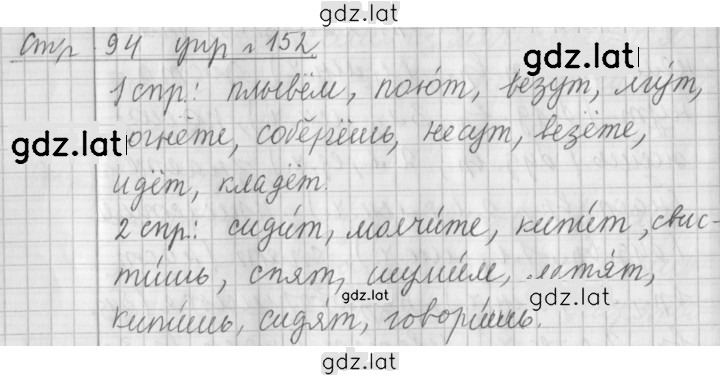 gdz.lat
стр 94 упр 152.
gdz.lat
1 спр: плывём, пою́т, везу́т, лгу́т,
gdz.lat
огнёте, соберёшь, несут, везёте,
идёт, кладёт.
2 спр: сиди́т, молчи́те, кипи́т, свис-
ти́шь, спят, шуми́м, летя́т,
gdz.lat
кипи́шь, сидя́т, говори́шь.
gdz.lat